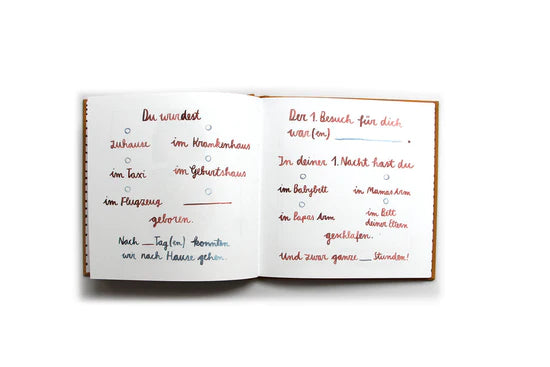 Du wurdest
zuhause im Krankenhaus
im Taxi im Geburtshaus
im Flugzeug ________
geboren.
Nach __Tag(en) konnten
wir nach Hause gehen.
Der 1. Besuch für dich
war(en) ____________.
In deiner 1. Nacht hast du
im Babybett in Mamas Arm
in Papas Arm im Bett
deiner Eltern
geschlafen.
Und zwar ganze __ Stunden!